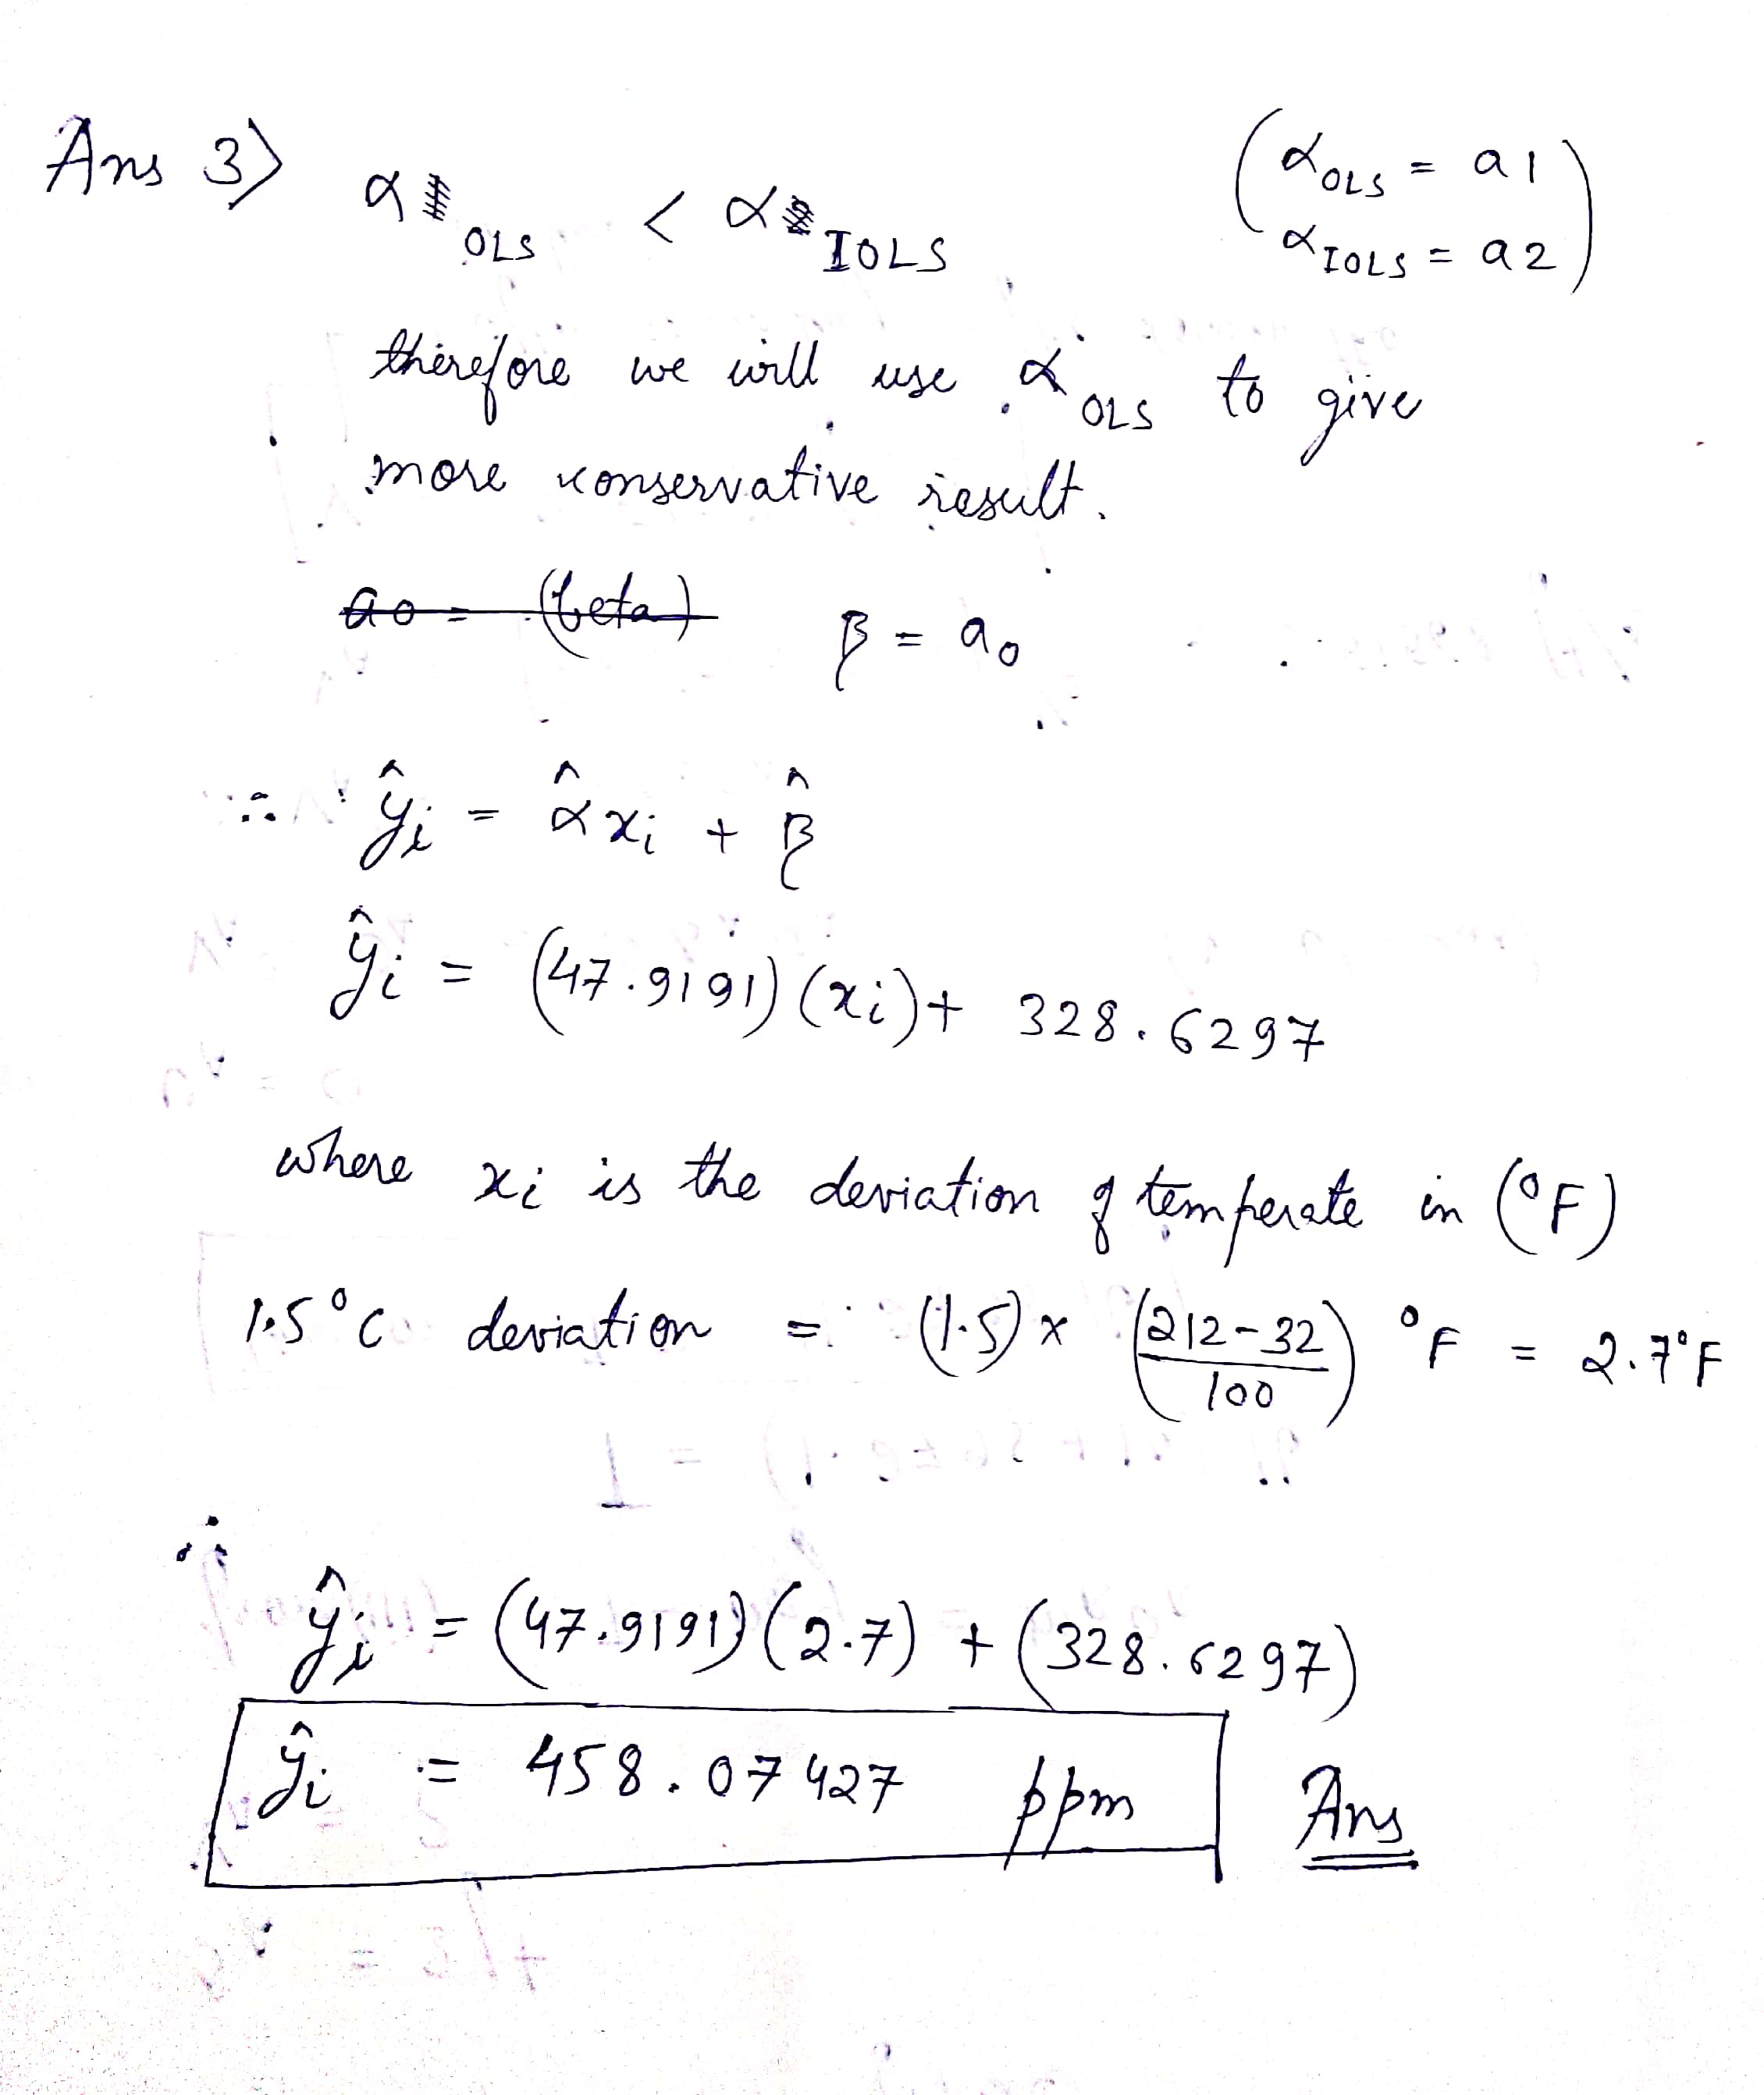 Ans 3) α OLS < α IOLS (α OLS = a1
α IOLS = a2)
therefore we will use α OLS to give
more conservative result.
a0 = (beta) β = a0
∴ ŷi = α̂ xi + β̂
ŷi = (47.9191) (xi) + 328.6297
where xi is the deviation of temperate in (°F)
1.5°C deviation = (1.5) x (212-32/100) °F = 2.7°F
∴
ŷi = (47.9191) (2.7) + (328.6297)
ŷi = 458.07427 ppm Ans